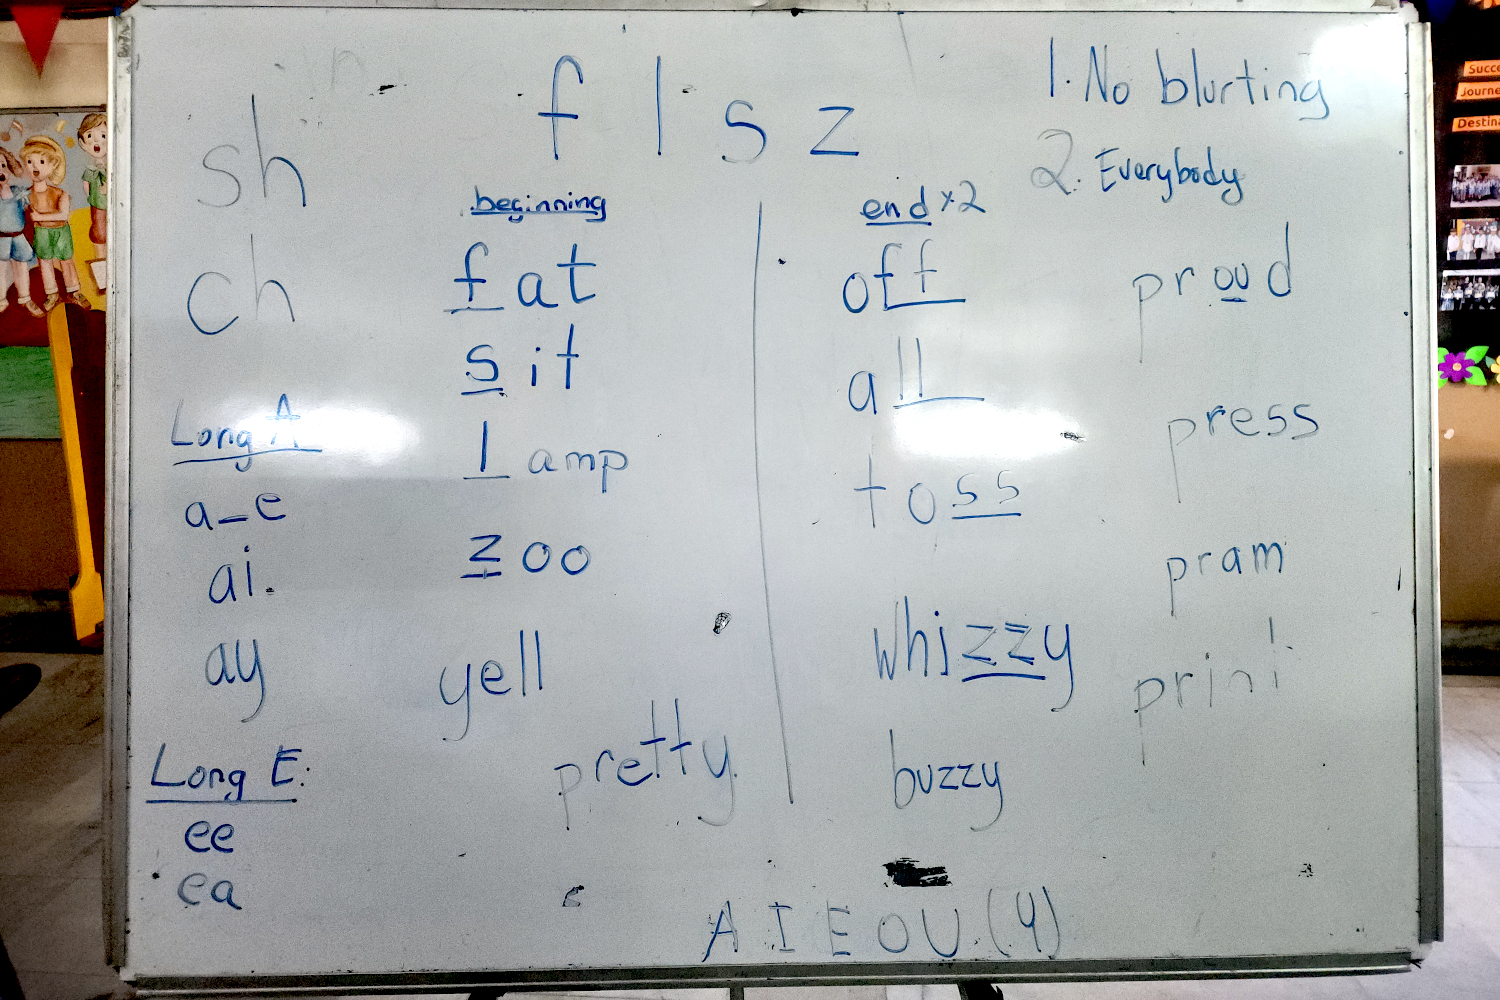 f l s z
1. No blurting
2. Everybody
sh
ch
Long A
a_e
ai.
ay
Long E:
ee
ea
beginning
fat
sit
lamp
zoo
yell
pretty
end x2
off
all
toss
whizzy
buzzy
proud
press
pram
print
A I E O U (Y)
Destina